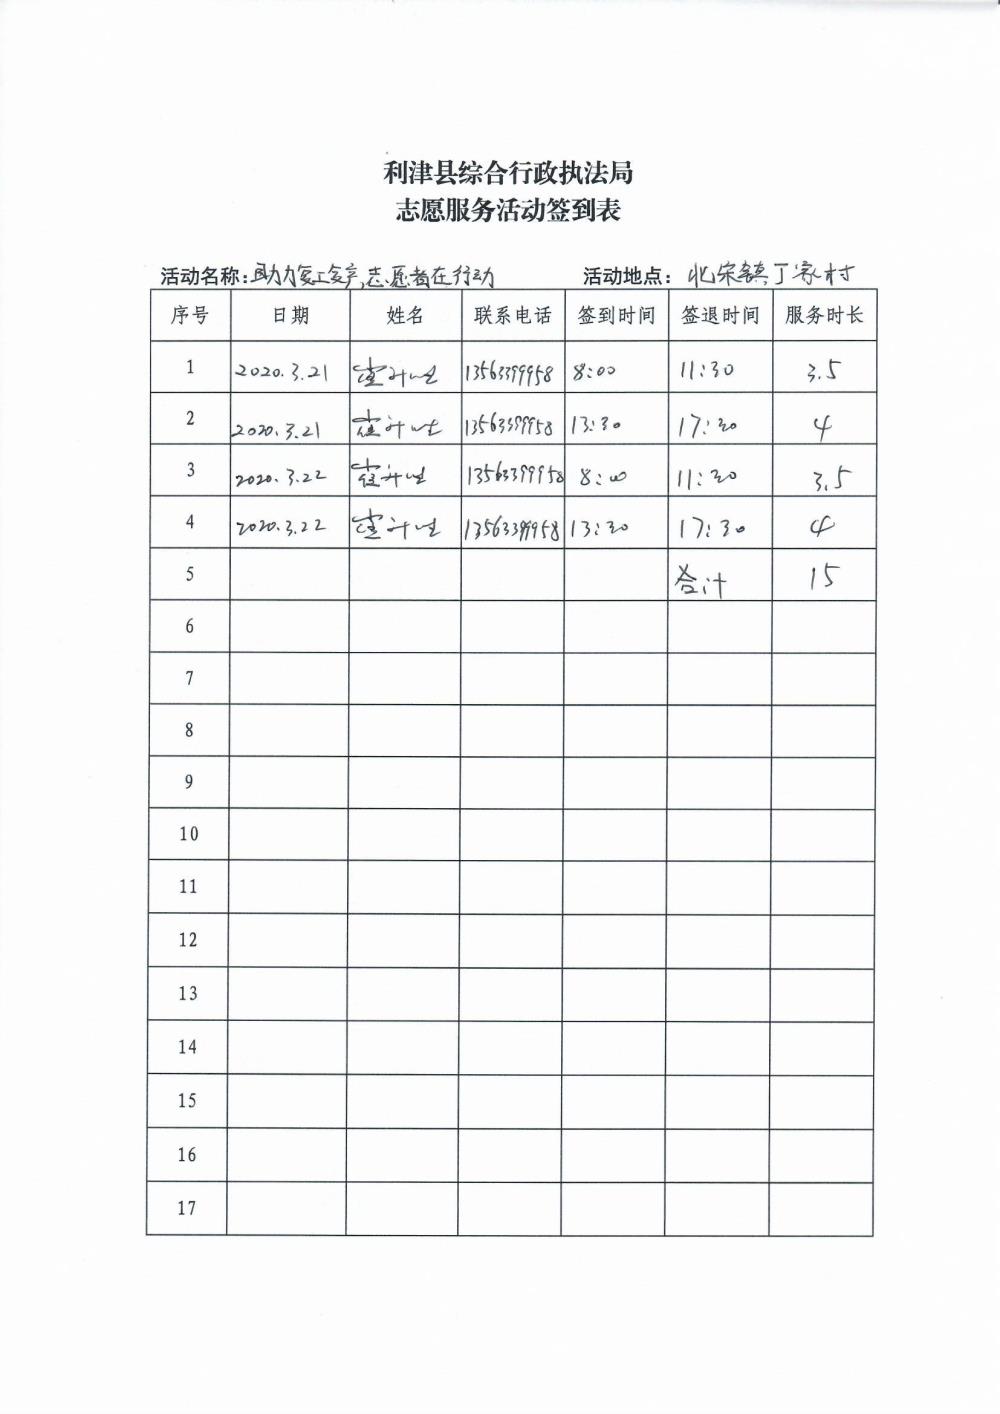 利津县综合行政执法局
志愿服务活动签到表
活动名称:助力复工复产,志愿者在行动 活动地点: 北宋镇丁家村
序号 日期 姓名 联系电话 签到时间 签退时间 服务时长
1 2020.3.21 13563399958 8:00 11:30 3.5
2 2020.3.21 13563399958 13:30 17:30 4
3 2020.3.22 13563399958 8:00 11:30 3.5
4 2020.3.22 13563399958 13:30 17:30 4
5 合计 15
6
7
8
9
10
11
12
13
14
15
16
17